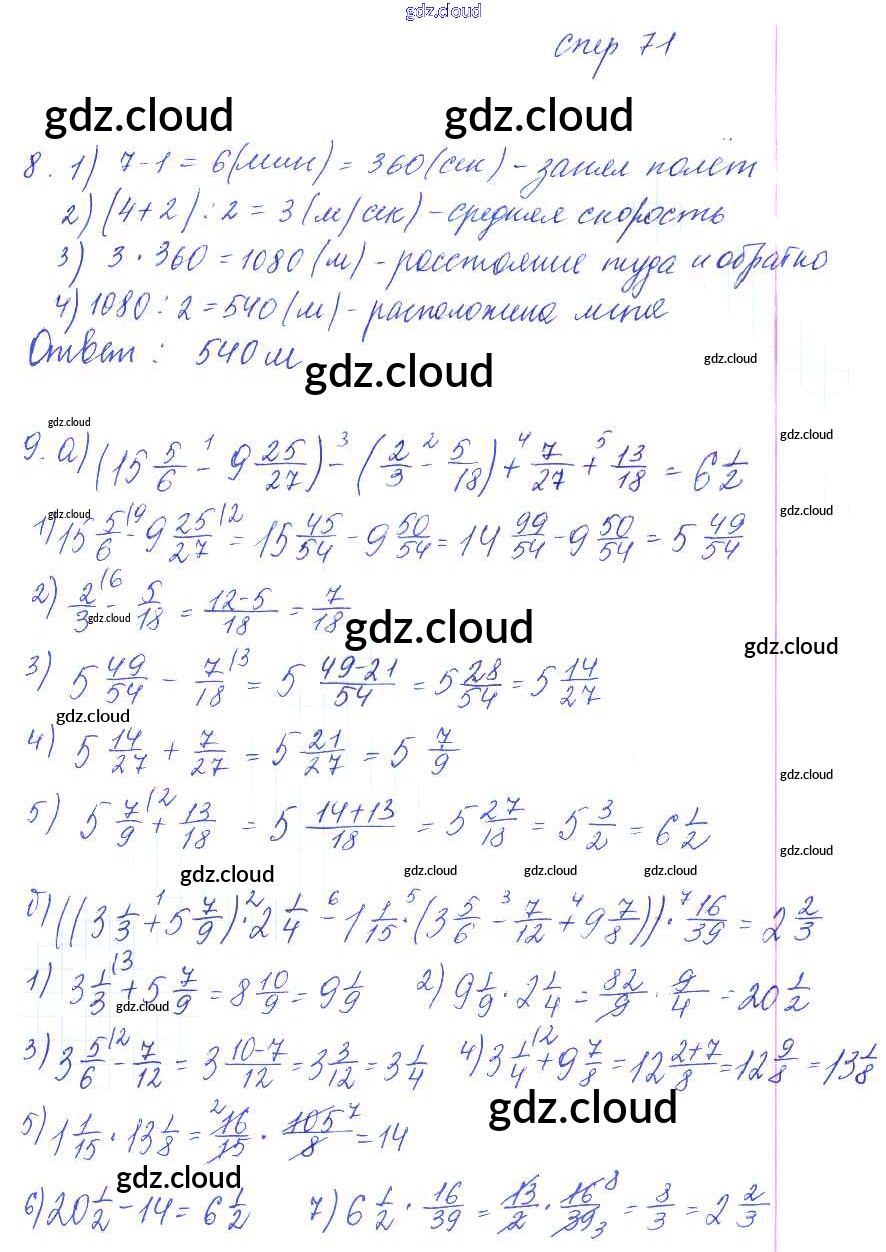 gdz.cloud
стр 71
gdz.cloud gdz.cloud
8. 1) 7-1 = 6(мин) = 360(сек) - занял полёт
2) (4+2) : 2 = 3 (м/сек) - средняя скорость
3) 3 · 360 = 1080 (м) - расстояние туда и обратно
4) 1080 : 2 = 540 (м) - расположена мель
Ответ : 540 м
gdz.cloud gdz.cloud
gdz.cloud gdz.cloud
9. а) (15 5/6 -¹ 9 25/27) -³ (2/3 -² 5/18) +⁴ 7/27 +⁵ 13/18 = 6 1/2
gdz.cloud gdz.cloud
1) 15 5/6 ⁽⁹ - 9 25/27 ⁽² = 15 45/54 - 9 50/54 = 14 99/54 - 9 50/54 = 5 49/54
2) 2/3 ⁽⁶ - 5/18 = (12-5)/18 = 7/18
gdz.cloud gdz.cloud gdz.cloud
3) 5 49/54 - 7/18 ⁽³ = 5 (49-21)/54 = 5 28/54 = 5 14/27
gdz.cloud
4) 5 14/27 + 7/27 = 5 21/27 = 5 7/9
gdz.cloud
5) 5 7/9 ⁽² + 13/18 = 5 (14+13)/18 = 5 27/18 = 5 3/2 = 6 1/2
gdz.cloud
gdz.cloud gdz.cloud gdz.cloud gdz.cloud
б) ((3 1/3 +¹ 5 7/9) ·² 2 1/4 -⁶ 1 1/15 ·⁵ (3 5/6 -³ 7/12 +⁴ 9 7/8)) ·⁷ 16/39 = 2 2/3
1) 3 1/3 ⁽³ + 5 7/9 = 8 10/9 = 9 1/9 2) 9 1/9 · 2 1/4 = 82/9 · 9/4 = 20 1/2
gdz.cloud
3) 3 5/6 ⁽² - 7/12 = 3 (10-7)/12 = 3 3/12 = 3 1/4 4) 3 1/4 ⁽² + 9 7/8 = 12 (2+7)/8 = 12 9/8 = 13 1/8
gdz.cloud
5) 1 1/15 · 13 1/8 = ²16/15 · 105⁷/8 = 14
gdz.cloud
6) 20 1/2 - 14 = 6 1/2 7) 6 1/2 · 16/39 = 13/2 · 16⁸/39₃ = 8/3 = 2 2/3